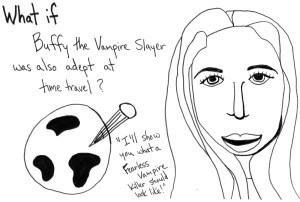 What if
Buffy the Vampire Slayer
was also adept at
time travel?
"I'll show
you what a
Fearless
Vampire
Killer should
look like!"